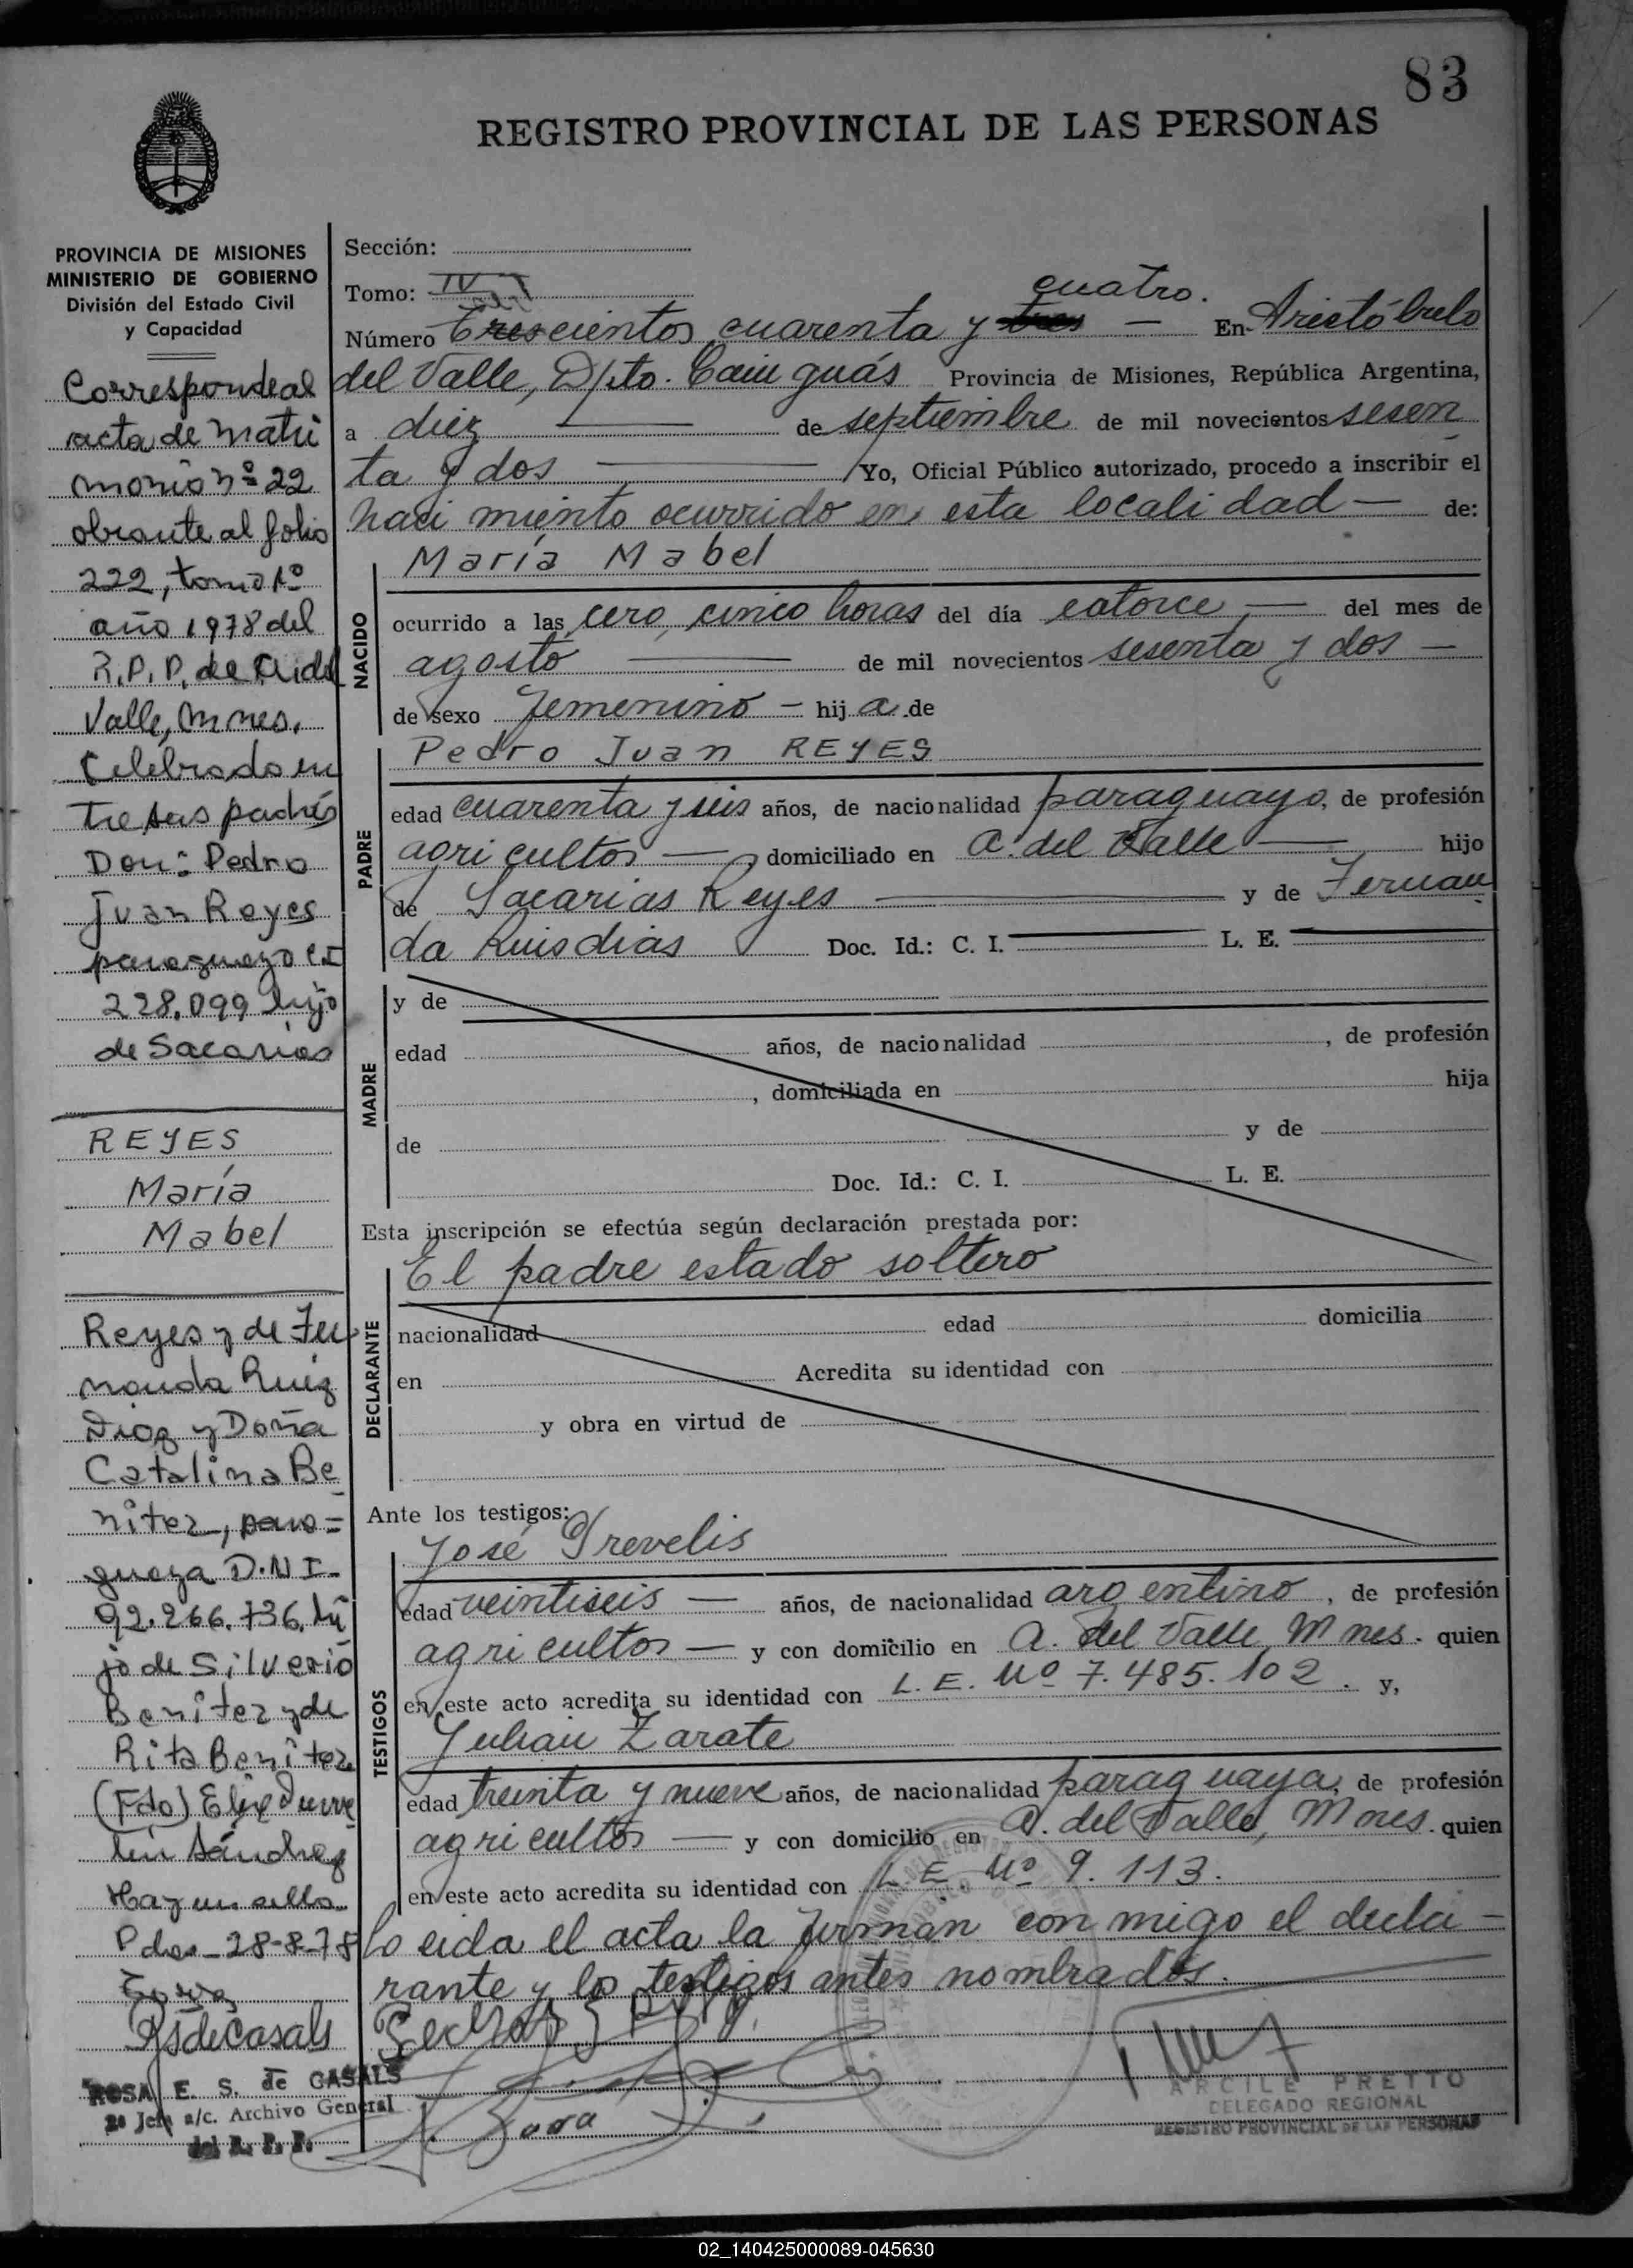 83
REGISTRO PROVINCIAL DE LAS PERSONAS
PROVINCIA DE MISIONES
MINISTERIO DE GOBIERNO
División del Estado Civil
y Capacidad
Corresponde al
acta de matri
monio nº 22
obrante al folio
222, tomo 1º
año 1978 del
R.P.P. de A. del
Valle, Mnes.
Celebrado en
tre sus padres
Don: Pedro
Juan Reyes
paraguayo C.I
228.099 hijo
de Sacarias
REYES
María
Mabel
Reyes y de Fer
nanda Ruiz
Diaz y Doña
Catalina Be
nitez, para=
guaya D.N.I.
92.266.736, hi
ja de Silverio
Benitez y de
Rita Benitez
(Fdo)
Sánchez
Hay un sello
Pdas - 28-8-78
RSdeCasals
ROSA E. S. de CASALS
2ª Jefa a/c. Archivo General
del R. P. P.
Sección:
Tomo: IV
cuatro.
Número Trescientos cuarenta y tres — En Aristóbulo
del Valle, Dpto. Cainguás Provincia de Misiones, República Argentina,
a diez — de septiembre de mil novecientos sesen
ta y dos — Yo, Oficial Público autorizado, procedo a inscribir el
naci miento ocurrido en esta locali dad — de:
María Mabel
NACIDO
ocurrido a las cero, cinco horas del día catorce — del mes de
agosto — de mil novecientos sesenta y dos —
de sexo femenino — hij a de
Pedro Juan REYES
PADRE
edad cuarenta y seis años, de nacionalidad paraguayo, de profesión
agricultor — domiciliado en A. del Valle — hijo
de Sacarias Reyes — y de Fernan
da Ruisdias Doc. Id.: C. I. — L. E. —
MADRE
y de
edad años, de nacionalidad , de profesión
, domiciliada en hija
de y de
Doc. Id.: C. I. L. E.
Esta inscripción se efectúa según declaración prestada por:
El padre estado soltero
DECLARANTE
nacionalidad edad domicilia
en Acredita su identidad con
y obra en virtud de
Ante los testigos:
José Trevelis
TESTIGOS
edad veintiseis — años, de nacionalidad argentino, de profesión
agricultor — y con domicilio en A. del Valle, Mnes. quien
en este acto acredita su identidad con L.E. Nº 7.485.102. y,
Julian Zarate
edad treinta y nueve años, de nacionalidad paraguaya, de profesión
agricultor — y con domicilio en A. del Valle, Mnes. quien
en este acto acredita su identidad con L.E. Nº 9.113.
Lo eida el acta la firman con migo el decla-
rante y lo testigos antes nombrados.
ARCILE PRETTO
DELEGADO REGIONAL
REGISTRO PROVINCIAL DE LAS PERSONAS
02_140425000089-045630